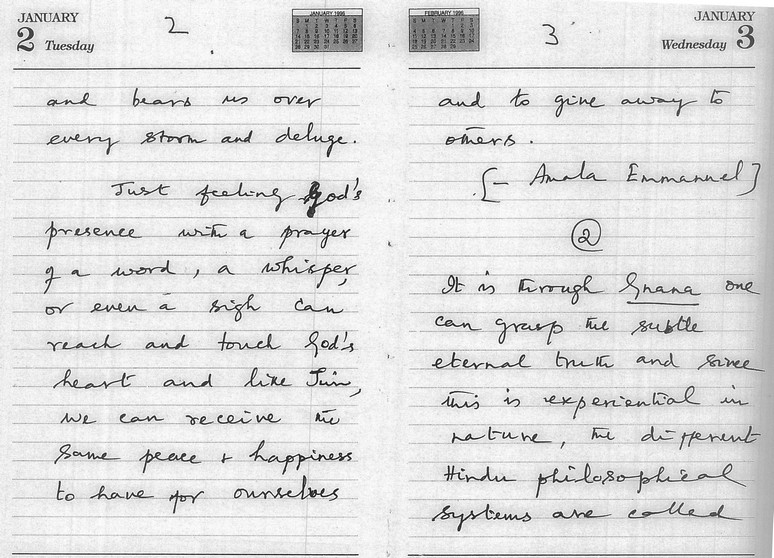 JANUARY
2 Tuesday
2
JANUARY 1996
and bears us over
every storm and deluge.
Just feeling God's
presence with a prayer
of a word, a whisper,
or even a sigh can
reach and touch God's
heart and like Jim,
we can receive the
same peace + happiness
to have for ourselves
FEBRUARY 1996
3
JANUARY
Wednesday 3
and to give away to
others.
[- Amala Emmanuel]
2
It is through Gnana one
can grasp the subtle
eternal truth and since
this is experiential in
nature, the different
Hindu philosophical
systems are called